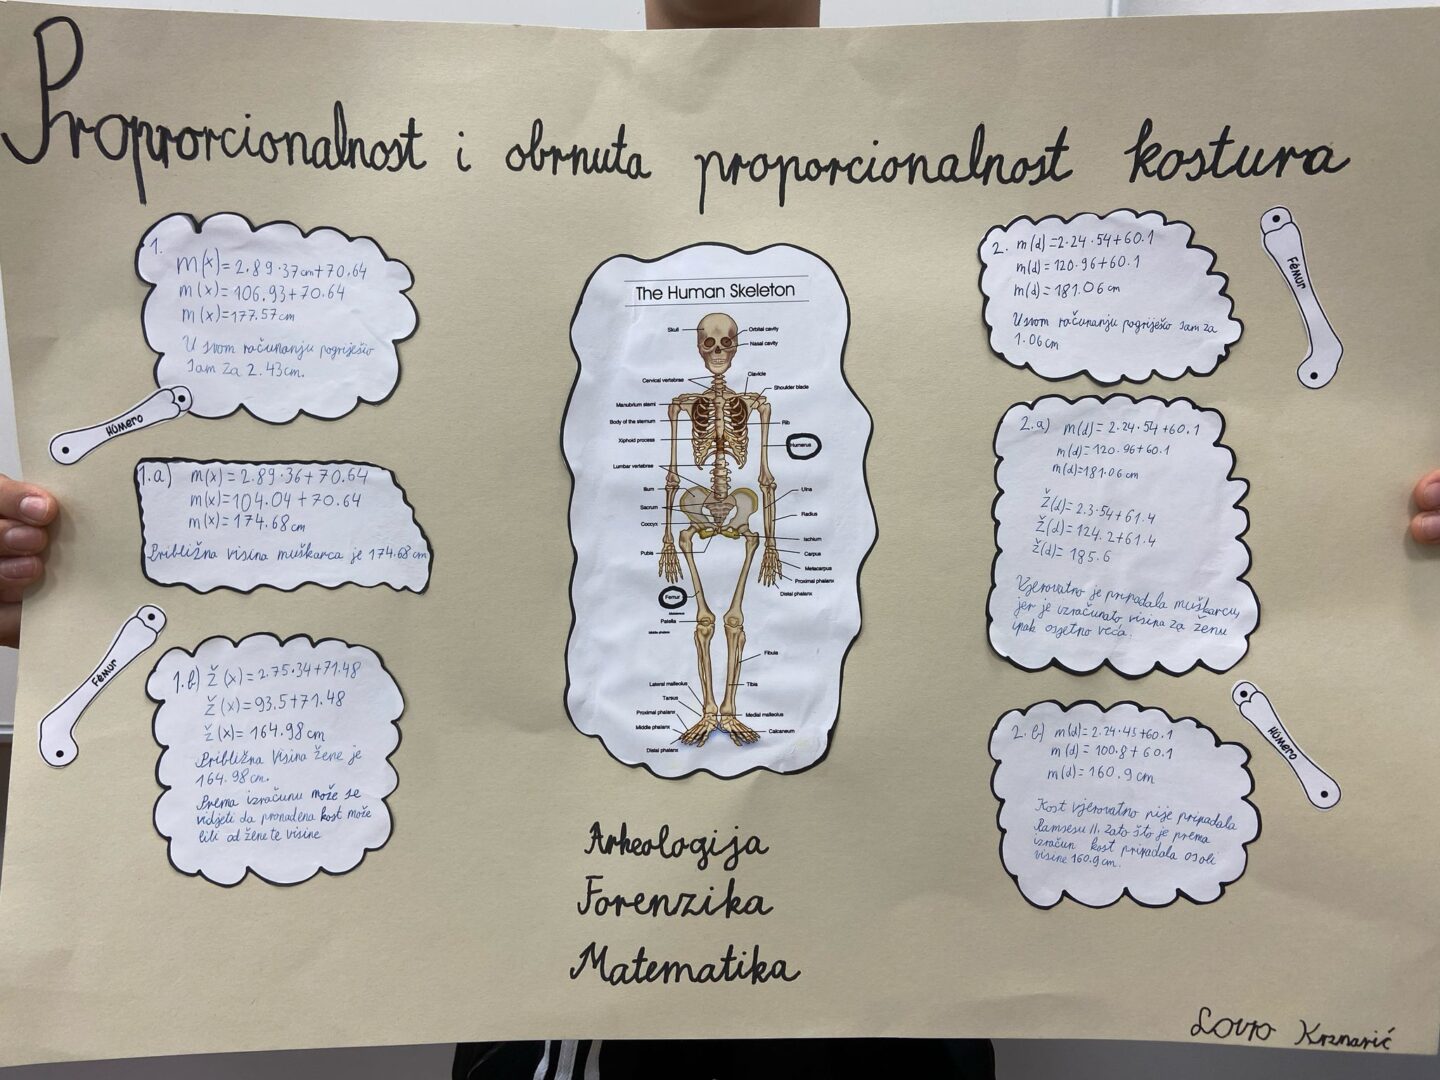 Proprorcionalnost i obrnuta proporcionalnost kostura
1.
m(x)=2.89·37cm+70.64
m(x)=106.93+70.64
m(x)=177.57cm
U svom računanju pogriješio
sam za 2.43cm.
Húmero
1.a) m(x)=2.89·36+70.64
m(x)=104.04+70.64
m(x)=174.68cm
Približna visina muškarca je 174.68cm
Fémur
1.b) Ž(x)=2.75·34+71.48
Ž(x)=93.5+71.48
Ž(x)=164.98cm
Približna visina žene je
164.98cm.
Prema izračunu može se
vidjeti da pronađena kost može
biti od žene te visine
The Human Skeleton
Skull
Orbital cavity
Nasal cavity
Cervical vertebrae
Clavicle
Shoulder blade
Manubrium sterni
Body of the sternum
Rib
Xiphoid process
Humerus
Lumbar vertebrae
Ilium
Ulna
Sacrum
Radius
Coccyx
Ischium
Pubis
Carpus
Metacarpus
Proximal phalanx
Distal phalanx
Femur
Patella
Middle phalanx
Fibula
Lateral malleolus
Tibia
Tarsus
Proximal phalanx
Medial malleolus
Middle phalanx
Calcaneum
Distal phalanx
Arheologija
Forenzika
Matematika
2. m(d)=2.24·54+60.1
m(d)=120.96+60.1
m(d)=181.06cm
U svom računanju pogriješio sam za
1.06cm
Fémur
2.a) m(d)=2.24·54+60.1
m(d)=120.96+60.1
m(d)=181.06cm
Ž(d)=2.3·54+61.4
Ž(d)=124.2+61.4
Ž(d)=185.6
Vjerovatno je pripadala muškarcu,
jer je izračunato visina za ženu
ipak osjetno veća.
Húmero
2.b) m(d)=2.24·45+60.1
m(d)=100.8+60.1
m(d)=160.9cm
Kost vjerovatno nije pripadala
Ramsesu II. zato što je prema
izračun kost pripadala osobi
visine 160.9cm.
Lovro Krznarić